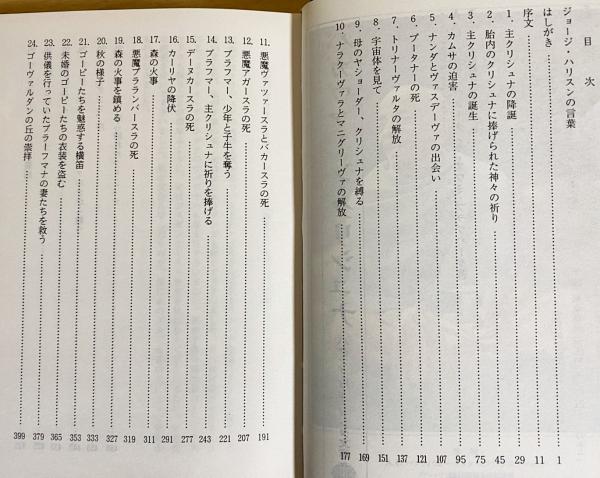 目次
ジョージ・ハリスンの言葉
はしがき 1
序文 11
1. 主クリシュナの降誕 29
2. 胎内のクリシュナに捧げられた神々の祈り 45
3. 主クリシュナの誕生 59
4. カムサの迫害 75
5. ナンダとヴァスデーヴァの出会い 95
6. プータナーの死 107
7. トリナーヴァルタの解放 121
8. 宇宙体を見て 137
9. 母のヤショーダー、クリシュナを縛る 151
10. ナラクーヴァラとマニグリーヴァの解放 169
177
11. 悪魔ヴァツァースラとバカースラの死 191
12. 悪魔アガースラの死 207
13. ブラフマー、少年と子牛を奪う 221
14. ブラフマー、主クリシュナに祈りを捧げる 243
15. デーヌカースラの死 277
16. カーリヤの降伏 291
17. 森の火事 311
18. 悪魔プラランバースラの死 319
19. 森の火事を鎮める 327
20. 秋の様子 333
21. ゴーピーたちを魅惑する横笛 353
22. 未婚のゴーピーたちの衣装を盗む 365
23. 供儀を行っていたブラーフマナの妻たちを救う 379
24. ゴーヴァルダンの丘の崇拝 399